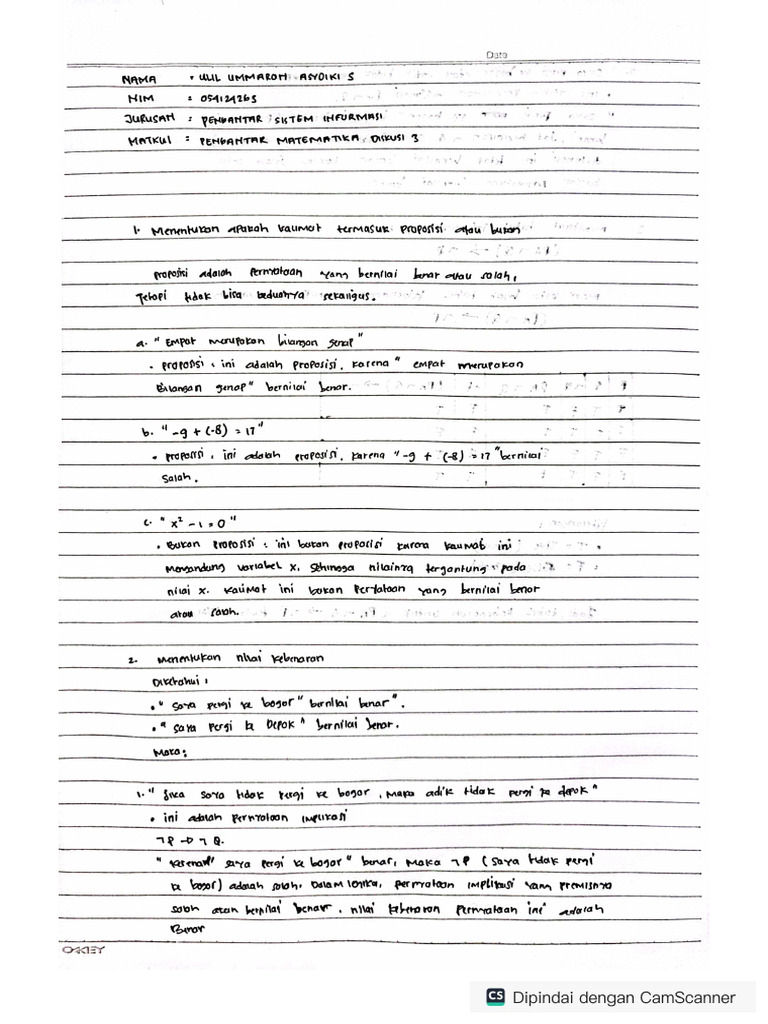 Date
NAMA : ULIL UMMAROH ASYDIKI S
NIM : 054124265
JURUSAN : PENGANTAR SISTEM INFORMASI
MATKUL : PENGANTAR MATEMATIKA, DISKUSI 3
1. Menentukan apakah kalimat termasuk proposisi atau bukan
proposisi adalah pernyataan yang bernilai benar atau salah,
Tetapi tidak bisa keduanya sekaligus.
a. "Empat merupakan bilangan genap"
• proposisi : ini adalah proposisi, karena "empat merupakan
Bilangan genap" bernilai benar.
b. "-9 + (-8) = 17"
• proposisi : ini adalah proposisi, karena "-9 + (-8) = 17" bernilai
Salah.
c. "x² - 1 = 0"
• Bukan proposisi : ini bukan proposisi karena kalimat ini
Mengandung variabel x, sehingga nilainya tergantung pada
nilai x. kalimat ini bukan pernyataan yang bernilai benar
atau salah.
2. Menentukan nilai kebenaran
Diketahui :
• "saya pergi ke bogor" bernilai benar".
• "saya pergi ke Depok" bernilai benar.
Maka:
1. "Jika saya tidak pergi ke bogor, maka adik tidak pergi ke depok"
• ini adalah pernyataan implikasi
¬P → ¬Q.
saya pergi ke bogor" benar, maka ¬P (saya tidak pergi
ke bogor) adalah salah. Dalam logika, pernyataan implikasi yang premisnya
salah akan bernilai benar. nilai kebenaran pernyataan ini adalah
Benar
OKEY
CS Dipindai dengan CamScanner